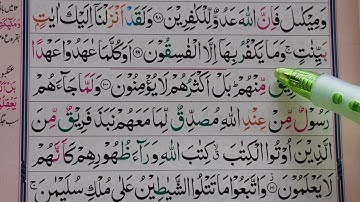 وَمِيْكٰىلَ فَاِنَّ اللّٰهَ عَدُوٌّ لِّلْكٰفِرِيْنَ ﴿۹۸﴾ وَلَقَدْ اَنْزَلْنَاۤ اِلَيْكَ اٰيٰتٍۭ
بَيِّنٰتٍ ۚ وَمَا يَكْفُرُ بِهَاۤ اِلَّا الْفٰسِقُوْنَ ﴿۹۹﴾ اَوَكُلَّمَا عٰهَدُوْا عَهْدًا
مِّنْهُمْ ؕ بَلْ اَكْثَرُهُمْ لَا يُؤْمِنُوْنَ ﴿۱۰۰﴾ وَلَمَّا جَآءَهُمْ
رَسُوْلٌ مِّنْ عِنْدِ اللّٰهِ مُصَدِّقٌ لِّمَا مَعَهُمْ نَبَذَ فَرِيْقٌ مِّنَ
الَّذِيْنَ اُوْتُوا الْكِتٰبَ ۙ كِتٰبَ اللّٰهِ وَرَآءَ ظُهُوْرِهِمْ كَاَنَّهُمْ
لَا يَعْلَمُوْنَ ﴿۱۰۱﴾ وَاتَّبَعُوْا مَا تَتْلُوا الشَّيٰطِيْنُ عَلٰى مُلْكِ سُلَيْمٰنَ ۚ